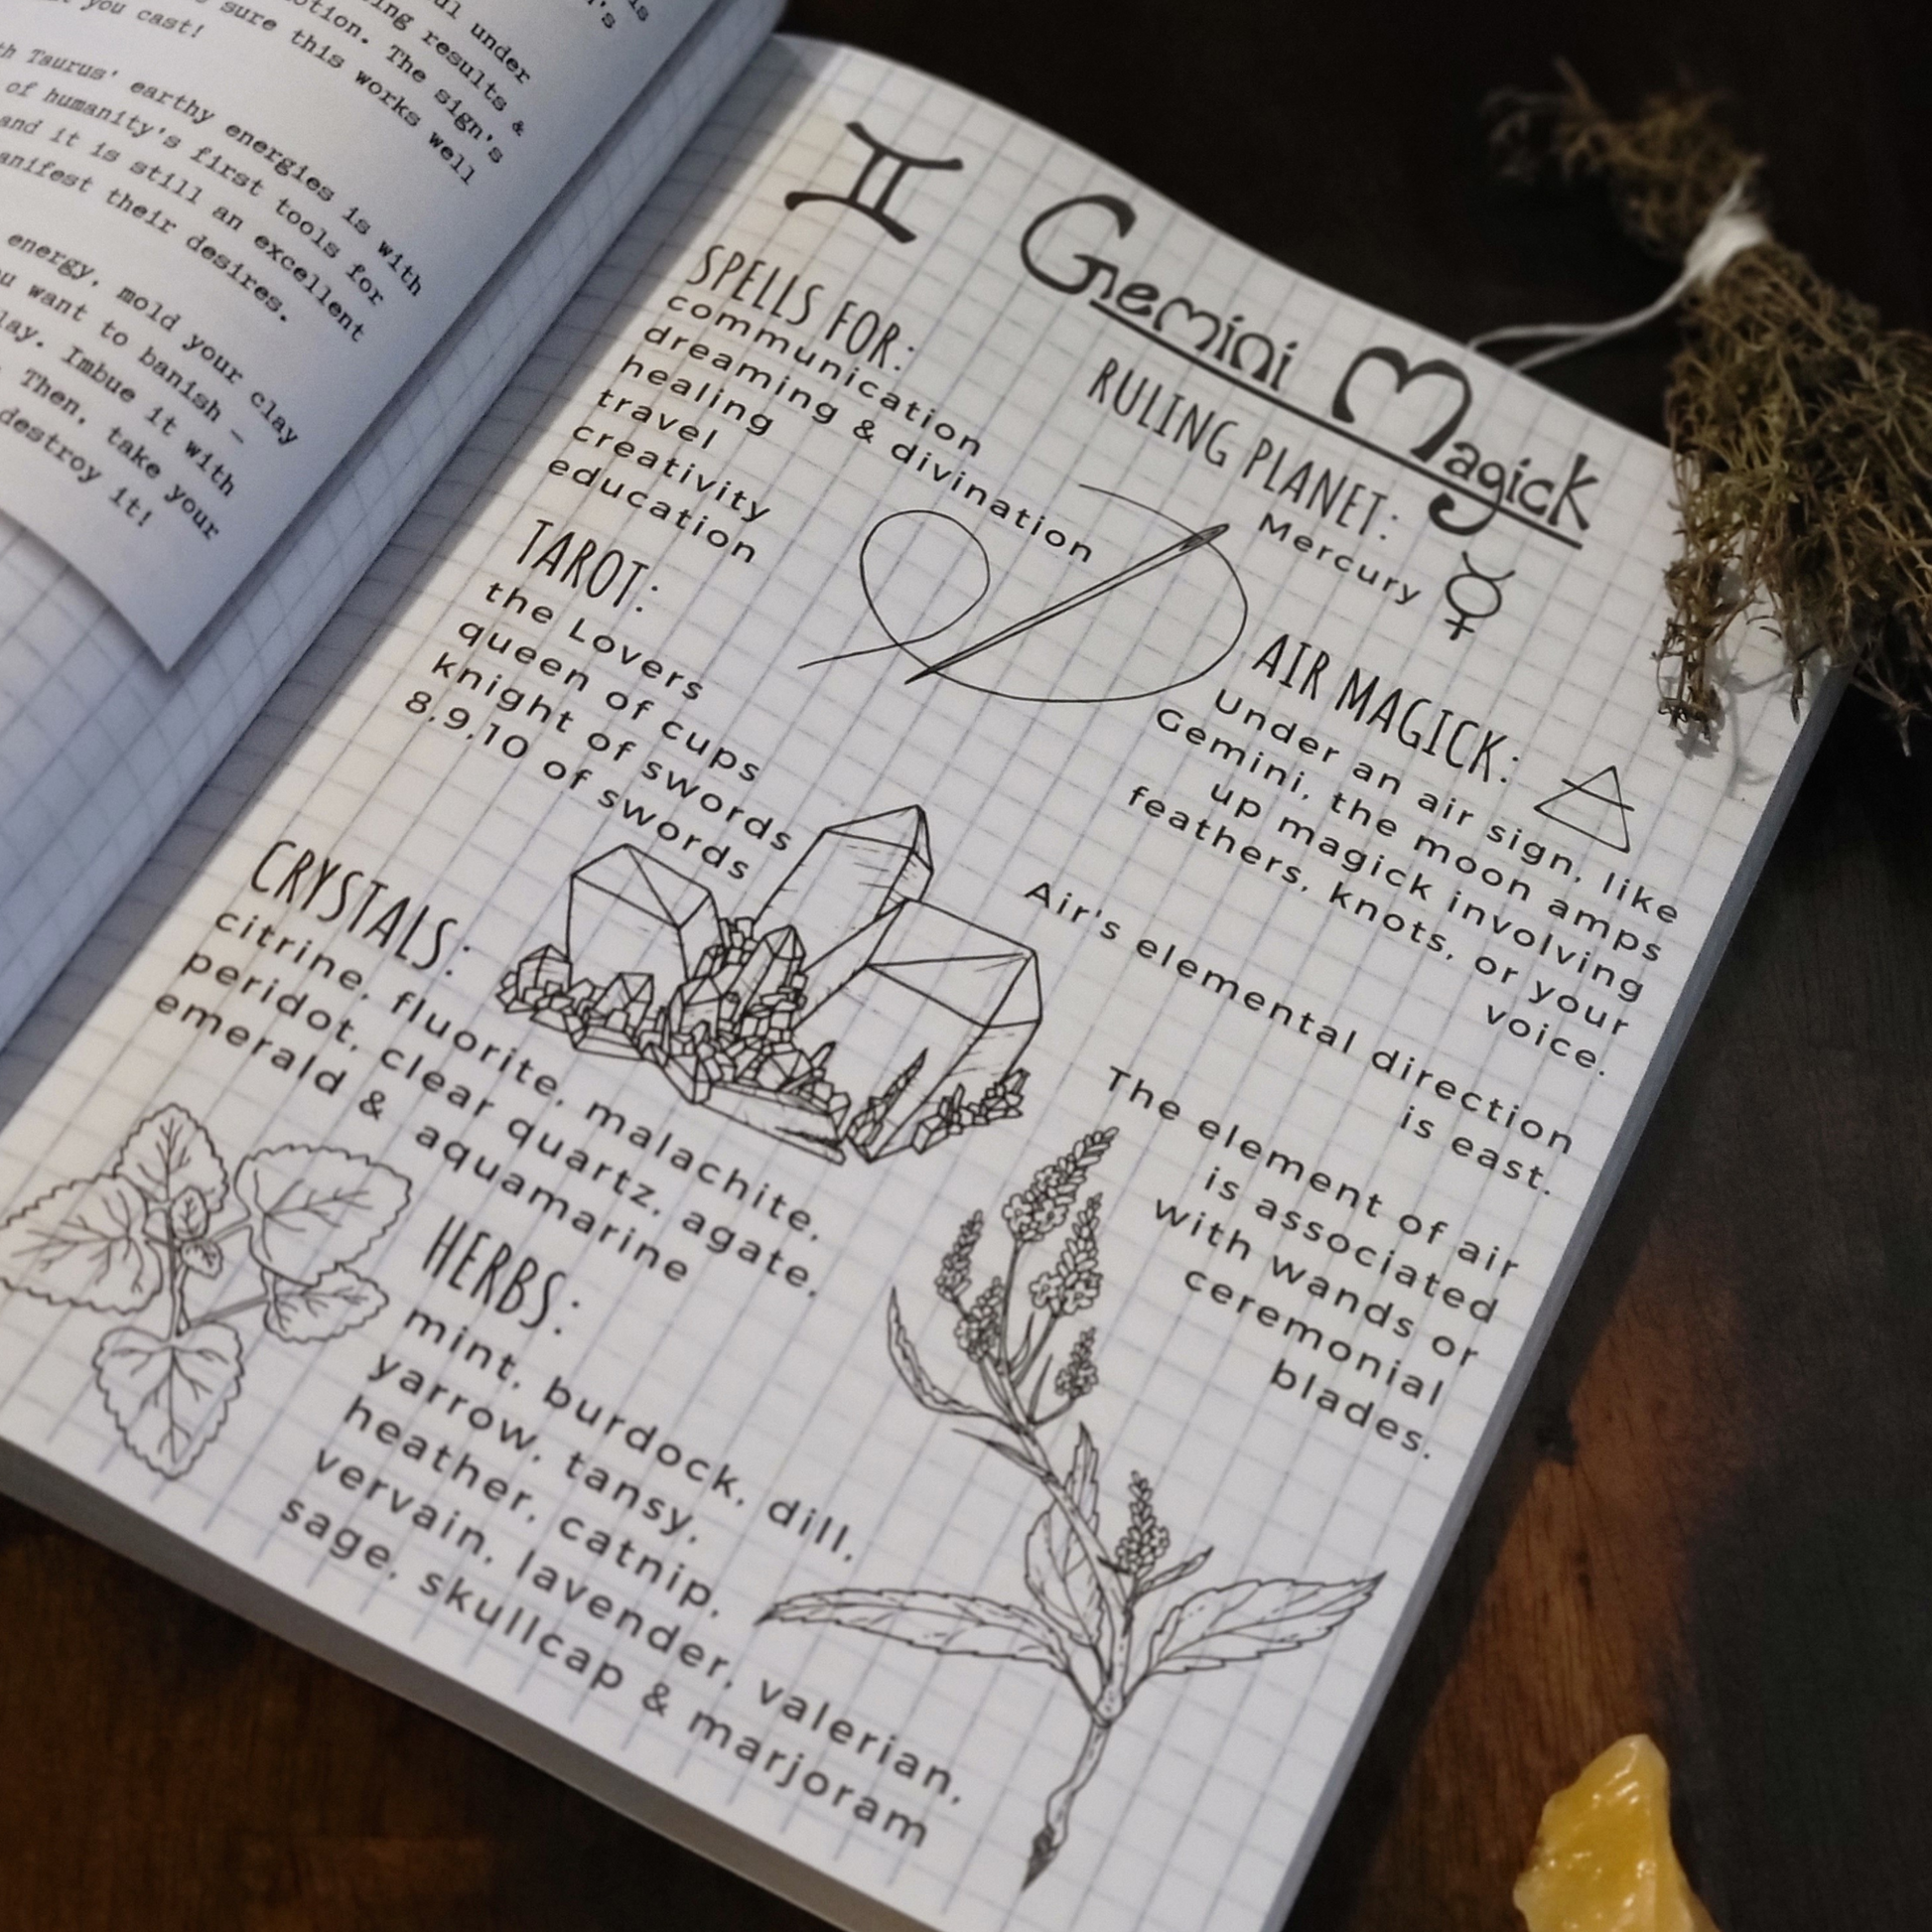 ul under
ing results &
otion. The sign's
sure this works well
you cast!
th Taurus' earthy energies is with
of humanity's first tools for
and it is still an excellent
anifest their desires.
energy, mold your clay
u want to banish –
lay. Imbue it with
Then, take your
destroy it!
♊ Gemini Magick
SPELLS FOR:
communication
dreaming & divination
healing
travel
creativity
education
RULING PLANET:
Mercury ☿
TAROT:
the Lovers
queen of cups
knight of swords
8,9,10 of swords
AIR MAGICK:
Under an air sign, like
Gemini, the moon amps
up magick involving
feathers, knots, or your
voice.
Air's elemental direction
is east.
The element of air
is associated
with wands or
ceremonial
blades.
CRYSTALS:
citrine, fluorite, malachite,
peridot, clear quartz, agate,
emerald & aquamarine
HERBS:
mint, burdock, dill,
yarrow, tansy,
heather, catnip,
vervain, lavender, valerian,
sage, skullcap & marjoram